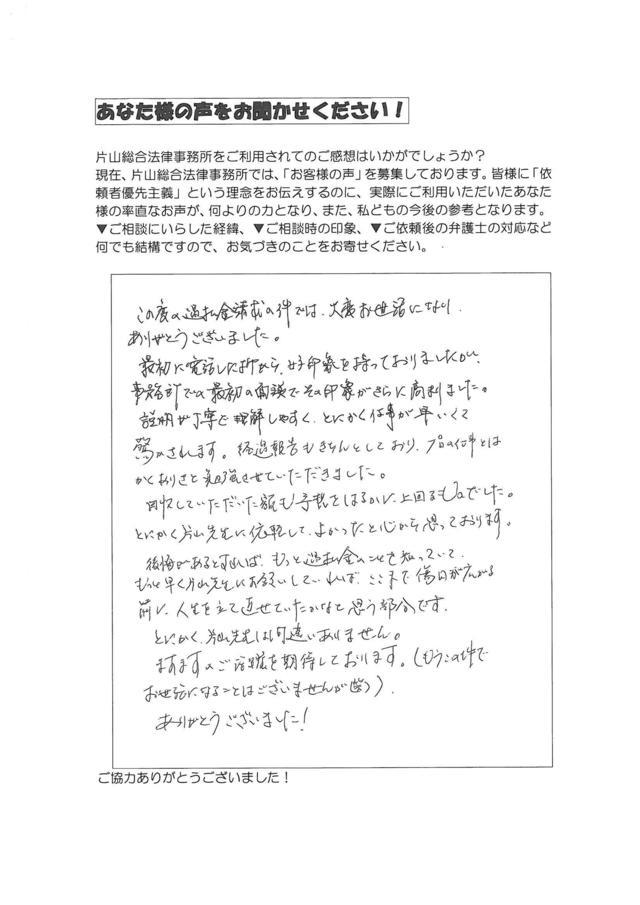 あなた様の声をお聞かせください！
片山総合法律事務所をご利用されてのご感想はいかがでしょうか？
現在、片山総合法律事務所では、「お客様の声」を募集しております。皆様に「依
頼者優先主義」という理念をお伝えするのに、実際にご利用いただいたあなた
様の率直なお声が、何よりの力となり、また、私どもの今後の参考となります。
▼ご相談にいらした経緯、▼ご相談時の印象、▼ご依頼後の弁護士の対応など
何でも結構ですので、お気づきのことをお寄せください。
この度の過払金請求の件では、大変お世話になり
ありがとうございました。
最初に電話した時から、好印象を持っておりましたが、
事務所での最初の面談でその印象がさらに高まりました。
説明が丁寧で理解しやすく、とにかく仕事が早いくて
驚かされます。経過報告もきちんとしており、プロの仕事とは
かくありきと勉強させていただきました。
回収していただいた額も予想をはるかに上回るものでした。
とにかく片山先生に依頼して、よかったと心から思っております。
後悔があるとすれば、もっと過払金のことを知っていて、
もっと早く片山先生にお願いしていれば、ここまで傷口が広がる
前に、人生を立て直せていたかなと思う部分です。
とにかく、片山先生は間違いありません。
ますますのご活躍を期待しております。（もうこの件で
お世話になることはございませんが（笑））.
ありがとうございました！
ご協力ありがとうございました！